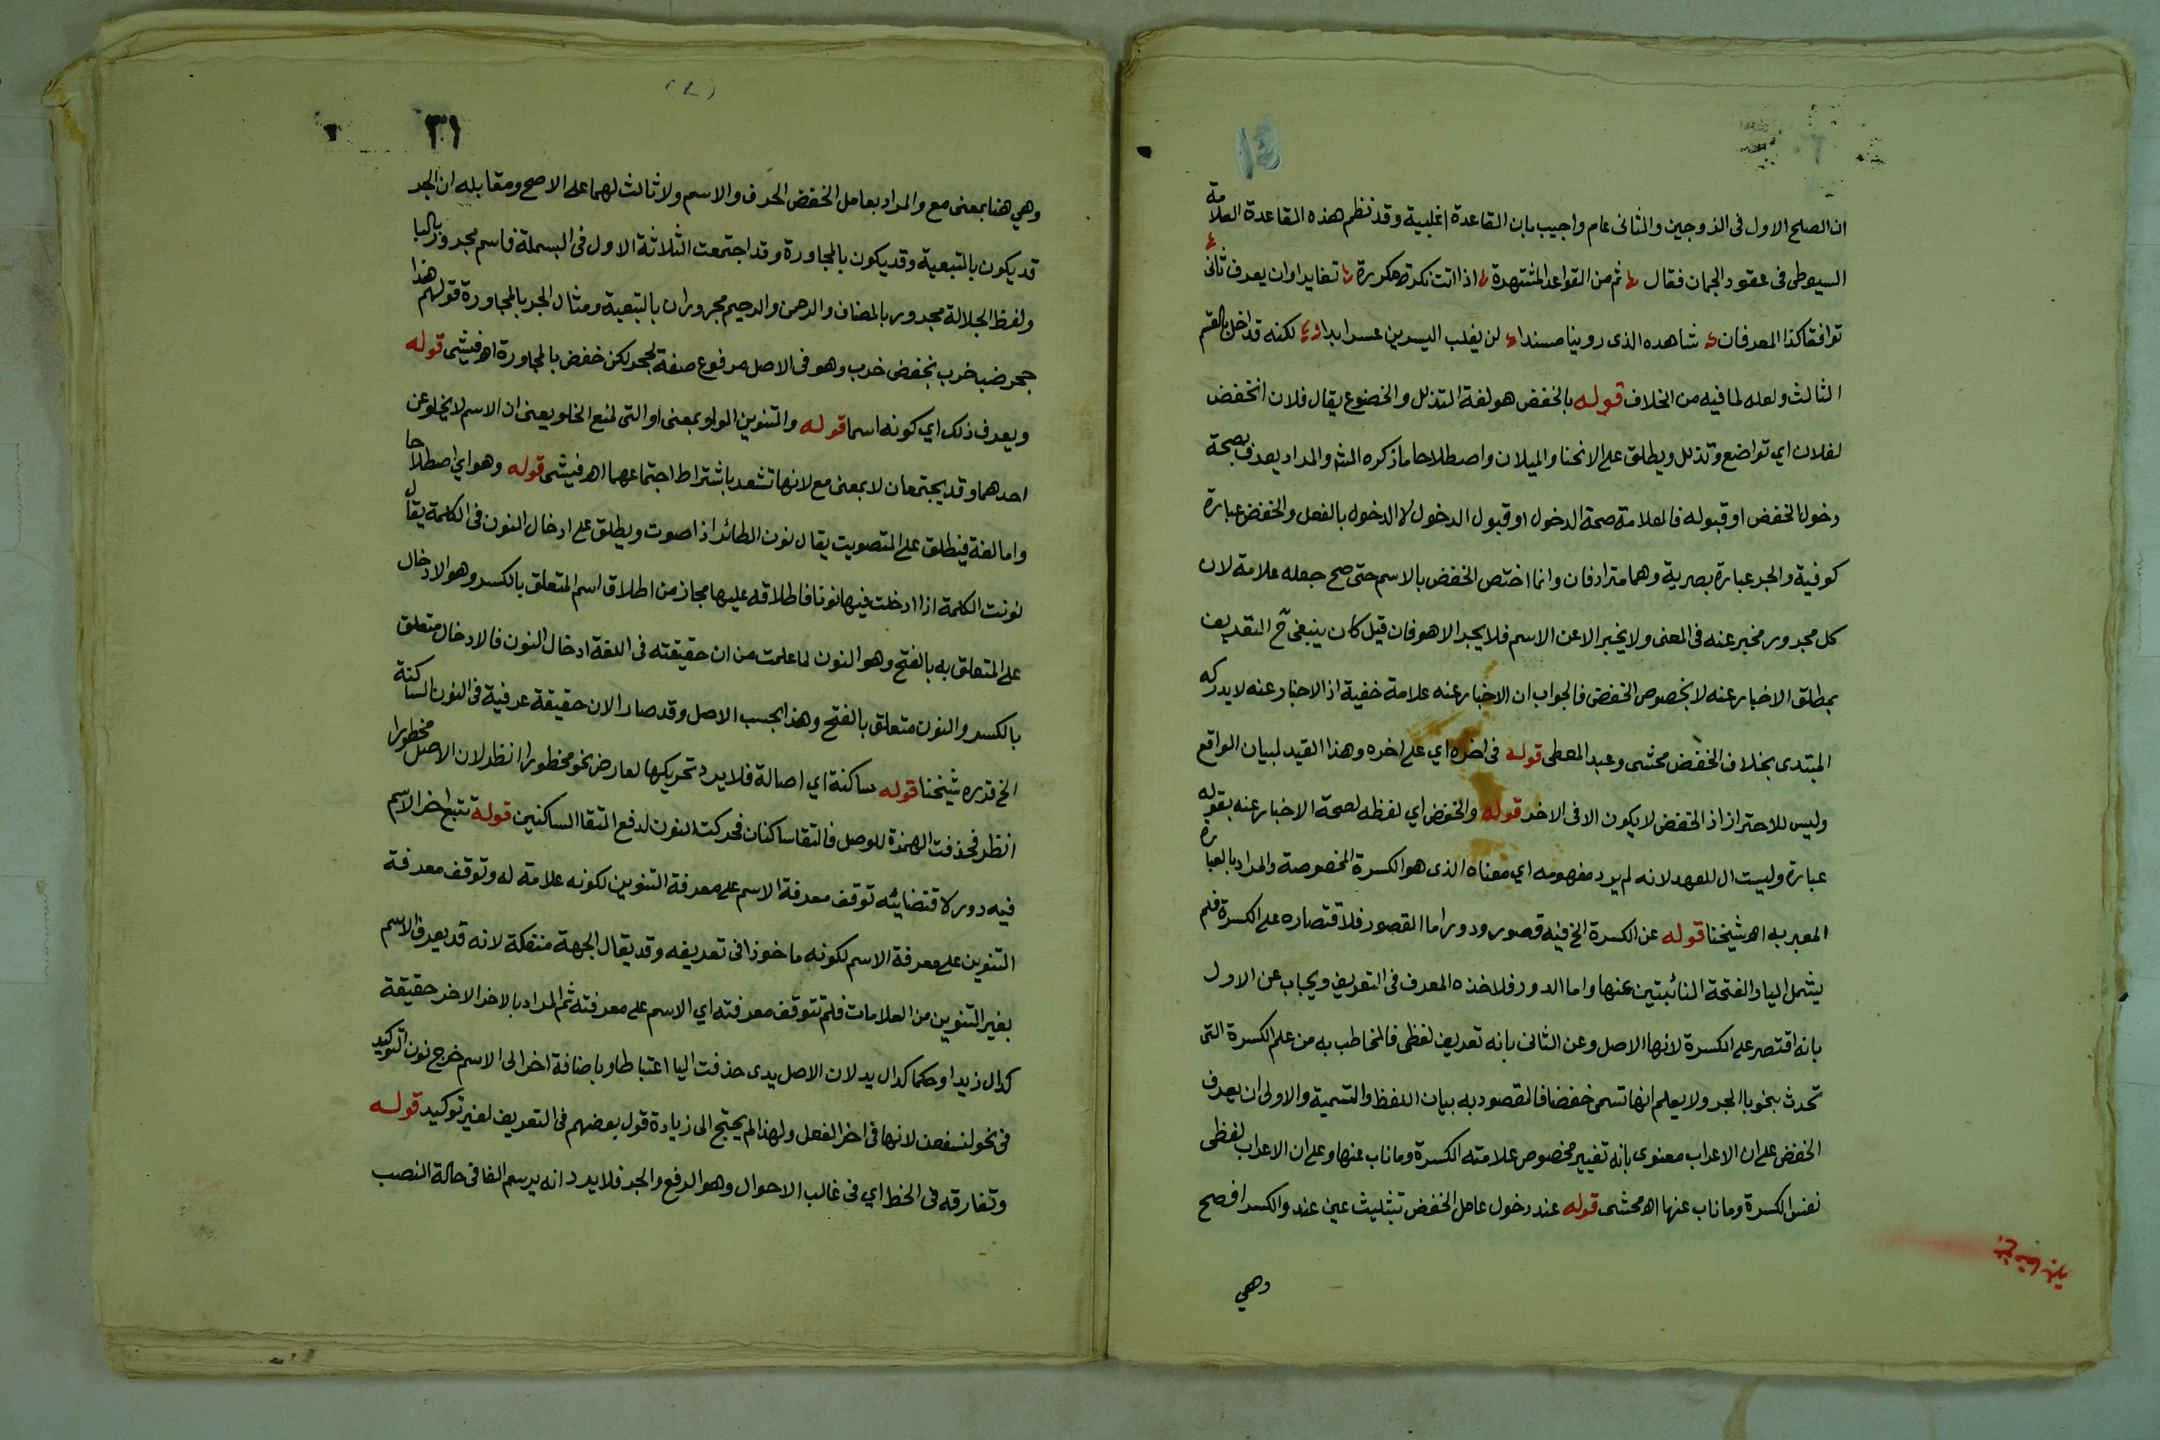 ان الصلح الاول فى الزوجين والثانى عام واجيب بان القاعدة اغلبية وقد نظم هذه القاعدة العلامة
السيوطى فى عقود الجمان فقال ثم من القواعد المشتهرة اذا اتت نكرة مكررة تغايرا وان يعرف ثانى
توافقا كذا المعرفان شاهده الذى روينا مسندا لن يغلب اليسرين عسر ابدا لكنه قد اخل بالقسم
الثالث ولعله لما فيه من الخلاف قوله بالخفض هو لغة التذلل والخضوع يقال فلان انخفض
لفلان اي تواضع وتذلل ويطلق على الانحنا والميلان واصطلاحا ما ذكره الش والمراد يعرف بصحة
دخول الخفض او قبوله فالعلامة صحة الدخول او قبول الدخول لا الدخول بالفعل والخفض عبارة
كوفية والجر عبارة بصرية وهما مترادفان وانما اختص الخفض بالاسم حتى صح جعله علامة لان
كل مجرور مخبر عنه فى المعنى ولا يخبر الا عن الاسم فلا يجر الا هو فان قيل كان ينبغى ح التعريف
بمطلق الاخبار عنه لا بخصوص الخفض فالجواب ان الاخبار عنه علامة خفية اذ الاخبار عنه لا يدركه
المبتدى بخلاف الخفض محشى وعبد المعطى قوله فى اخره اي على اخره وهذا القيد لبيان الواقع
وليس للاحتراز اذ الخفض لا يكون الا فى الاخر قوله والخفض اي لفظه لصحة الاخبار عنه بقوله
عبارة وليست ال للعهد لانه لم يرد مفهومه اي معناه الذى هو الكسرة المخصوصة والمراد بالعبارة
المعبر به اهـ شيخنا قوله عن الكسرة الخ فيه قصور ودور اما القصور فلاقتصاره على الكسرة فلم
يشمل اليا والفتحة النائبتين عنها واما الدور فلاخذه المعرف فى التعريف ويجاب عن الاول
بانه اقتصر على الكسرة لانها الاصل وعن الثانى بانه تعريف لفظى فالمخاطب به من علم الكسرة التى
تحدث بنحو با الجر ولا يعلم انها تسمى خفضا فالمقصود به بيان اللفظ والتسمية والاولى ان يعرف
الخفض على ان الاعراب معنوى بانه تغيير مخصوص علامته الكسرة وما ناب عنها وعلى ان الاعراب لفظى
نفس الكسرة وما ناب عنها اهـ محشى قوله عند دخول عامل الخفض بتثليث عين عند والكسر افصح
وهي
٣١
وهي هنا بمعنى مع والمراد بعامل الخفض الحرف والاسم ولا ثالث لهما على الاصح ومقابله ان الجر
قد يكون بالتبعية وقد يكون بالمجاورة وقد اجتمعت الثلاثة الاول فى البسملة فاسم مجرور بالبا
ولفظ الجلالة مجرور بالمضاف والرحمن والرحيم مجروران بالتبعية ومثال الجر بالمجاورة قولهم هذا
جحر ضب خرب بخفض خرب وهو فى الاصل مرفوع صفة لجحر لكن خفض بالمجاورة اهـ فيشى قوله
ويعرف ذلك اي كونه اسما قوله والتنوين الواو بمعنى او التى لمنع الخلو يعنى ان الاسم لا يخلو عن
احدهما وقد يجتمعان لا بمعنى مع لانها تشعر باشتراط اجتماعهما اهـ فيشى قوله وهو اي اصطلاحا
واما لغة فيطلق على التصويت يقال نون الطائر اذا صوت ويطلق على ادخال النون فى الكلمة يقال
نونت الكلمة اذا ادخلت فيها نونا فاطلاقه عليها مجاز من اطلاق اسم المتعلق بالكسر وهو الادخال
على المتعلق به بالفتح وهو النون لما علمت من ان حقيقته فى اللغة ادخال النون فالادخال متعلق
بالكسر والنون متعلق بالفتح وهذا بحسب الاصل وقد صار الان حقيقة عرفية فى النون الساكنة
الخ قرره شيخنا قوله ساكنة اي اصالة فلا يرد تحريكها لعارض نحو محظورا انظر لان الاصل محظورا
انظر فحذفت الهمزة للوصل فالتقا ساكنان فحركت النون لدفع التقا الساكنين قوله تتبع اخر الاسم
فيه دور لاقتضائه توقف معرفة الاسم على معرفة التنوين لكونه علامة له وتوقف معرفة
التنوين على معرفة الاسم لكونه ماخوذا فى تعريفه وقد يقال الجهة منفكة لانه قد يعرف الاسم
بغير التنوين من العلامات فلم تتوقف معرفته اي الاسم على معرفته ثم المراد بالاخر الاخر حقيقة
كدال زيد او حكما كدال يد لان الاصل يدى حذفت اليا اعتباطا وباضافة اخر الى الاسم خرج نون التوكيد
فى نحو لنسفعن لانها فى اخر الفعل ولهذا لم يحتج الى زيادة قول بعضهم فى التعريف لغير توكيد قوله
وتفارقه فى الخط اي فى غالب الاحوال وهو الرفع والجر فلا يرد انه يرسم الفا فى حالة النصب